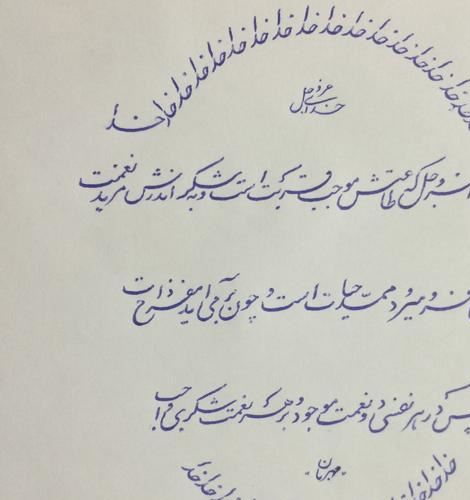 خدا خدا خدا خدا خدا خدا خدا خدا خدا خدا خدا خدا خدا
خدای عزوجل
عز و جل که طاعتش موجب قربت است و به شکر اندرش مزید نعمت
فرو میرود ممد حیات است و چون بر می آید مفرح ذات
پس در هر نفسی دو نعمت موجود و بر هر نعمت شکری واجب
مهربان
خدا خدا خدا خدا خدا خدا